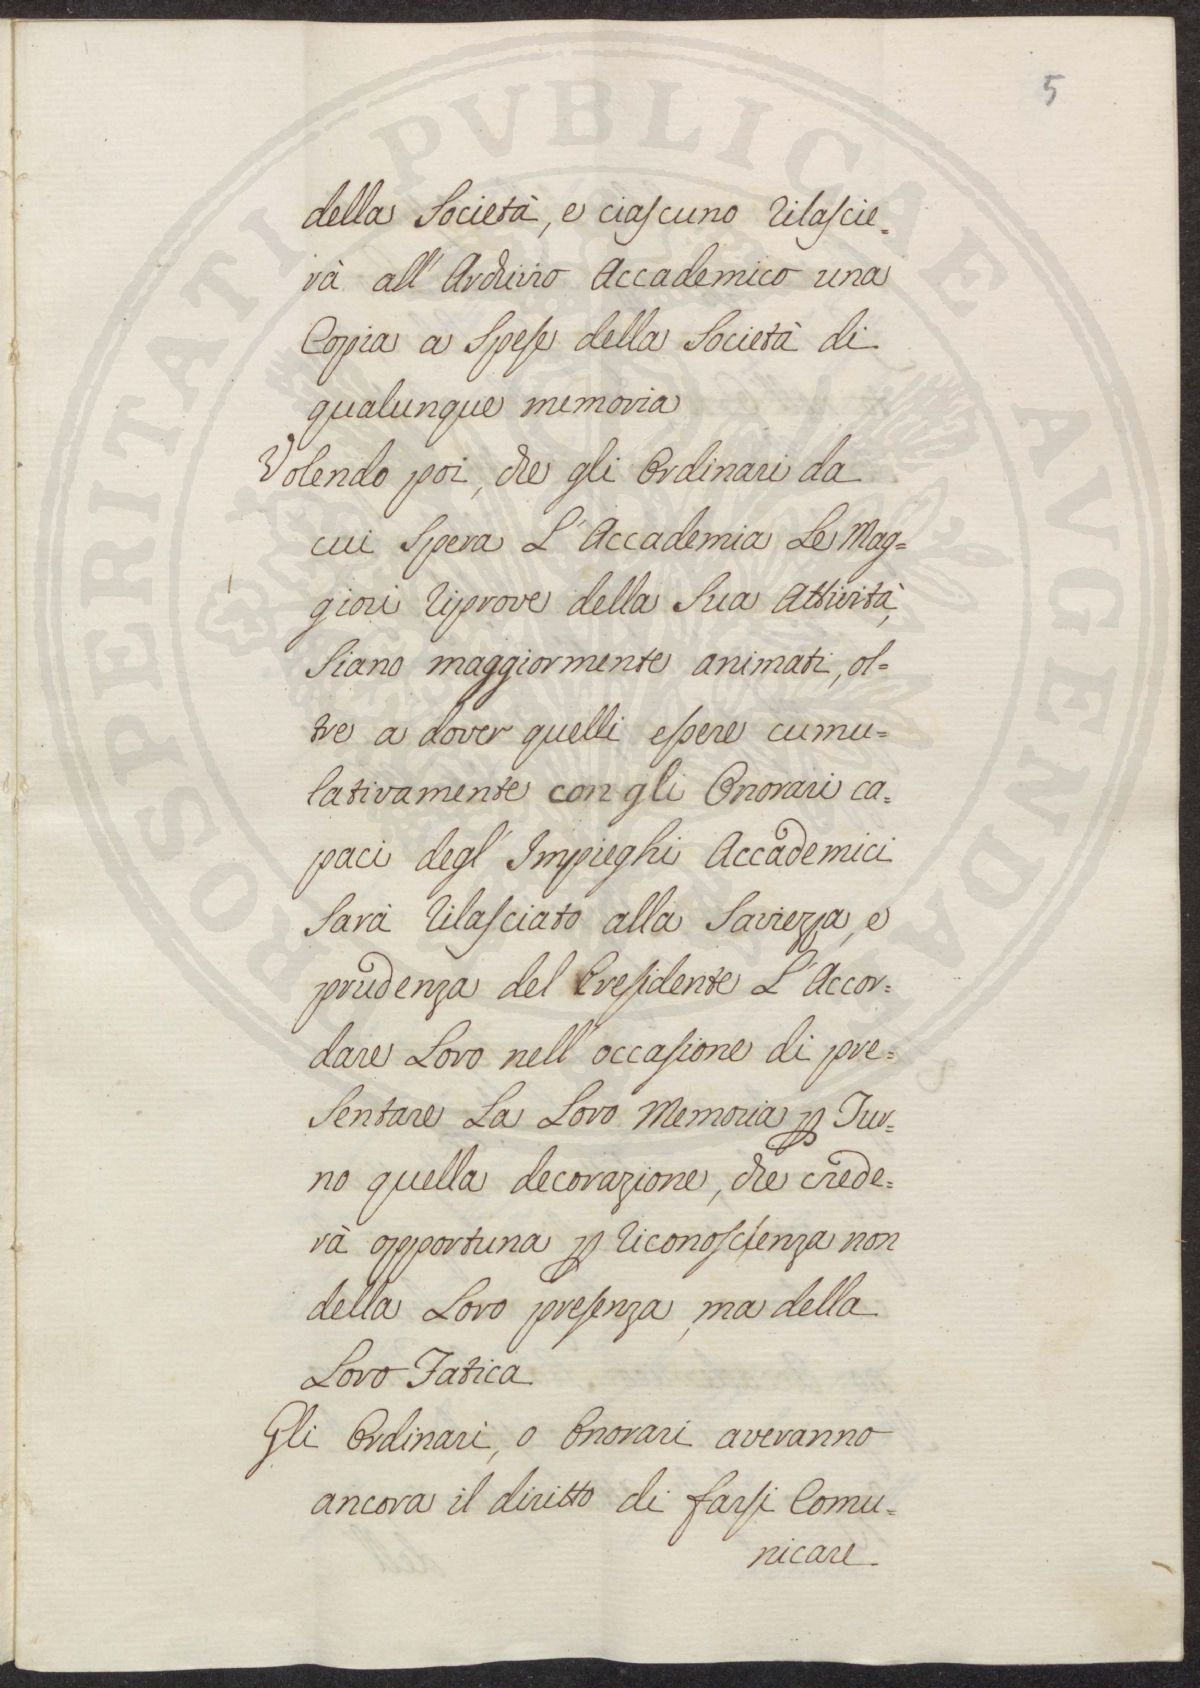 5
della Società, e ciascuno rilascie=
rà all' Archivio Accademico una
Copia a Spese della Società di
qualunque memoria
Volendo poi, che gli Ordinari da
cui Spera L'Accademia Le Mag=
giori riprove della Sua Attività,
Siano maggiormente animati, ol=
tre a dover quelli essere cumu=
lativamente con gli Onorari ca=
paci degl' Impieghi Accademici
Sarà rilasciato alla Saviezza, e
prudenza del Presidente L'Accor=
dare Loro nell'occasione di pre=
Sentare La Loro Memoria p Tur=
no quella decorazione, che crede=
rà opportuna p riconoscienza non
della Loro presenza, ma della
Loro Fatica
Gli Ordinari, o Onorari averanno
ancora il diritto di farsi Comu=
nicare
PROSPERITATI PVBLICAE AVGENDAE